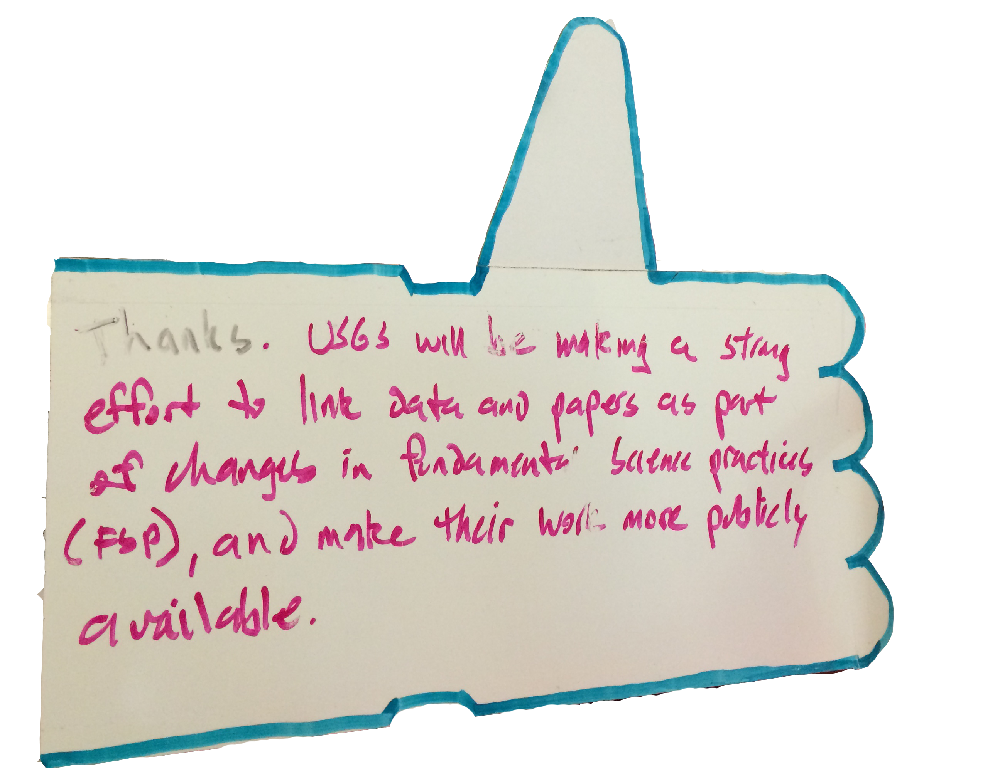 Thanks. USGS will be making a strong
effort to link data and papers as part
of changes in fundamental Science practices
(FSP), and make their work more publicly
available.